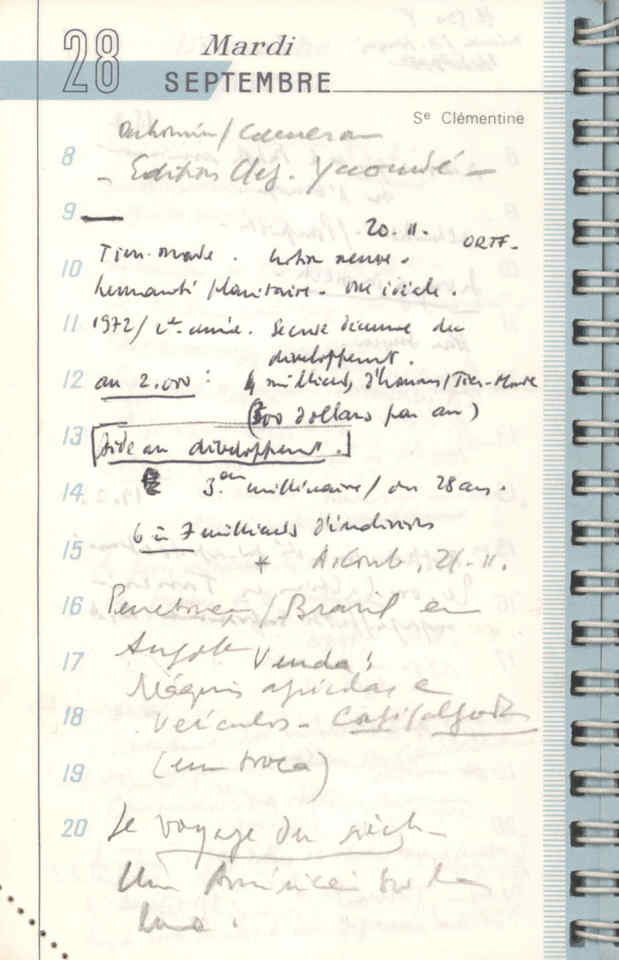 28 Mardi
SEPTEMBRE
Se Clémentine
/ Cameroun
8 - Edition Clef. Yaoundé -
9 20.11. ORTF-
10 Tiers-monde. Notion neuve.
humanité planitaire. une idée.
11 1972/ 2e année. Seconde décennie du
développement.
12 an 2.000: 4 milliards d'hommes/Tiers-Monde
(300 dollars par an)
13 Aide au développement.
14 3.em millénaire/ en 28 ans.
6 à 7 milliards d'individus
15 * 21.11.
16 / Brasil en
Angola
17 Venda:
Máquinas agrícolas e
18 veículos - Café/algodão
19 (em troca)
20 Le voyage du siècle
Un Américain sur la
luna.